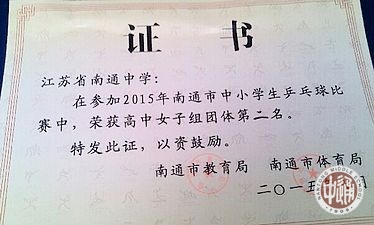 证 书
江苏省南通中学:
在参加2015年南通市中小学生乒乓球比
赛中,荣获高中女子组团体第二名。
特发此证,以资鼓励。
南通市教育局 南通市体育局
二〇一五